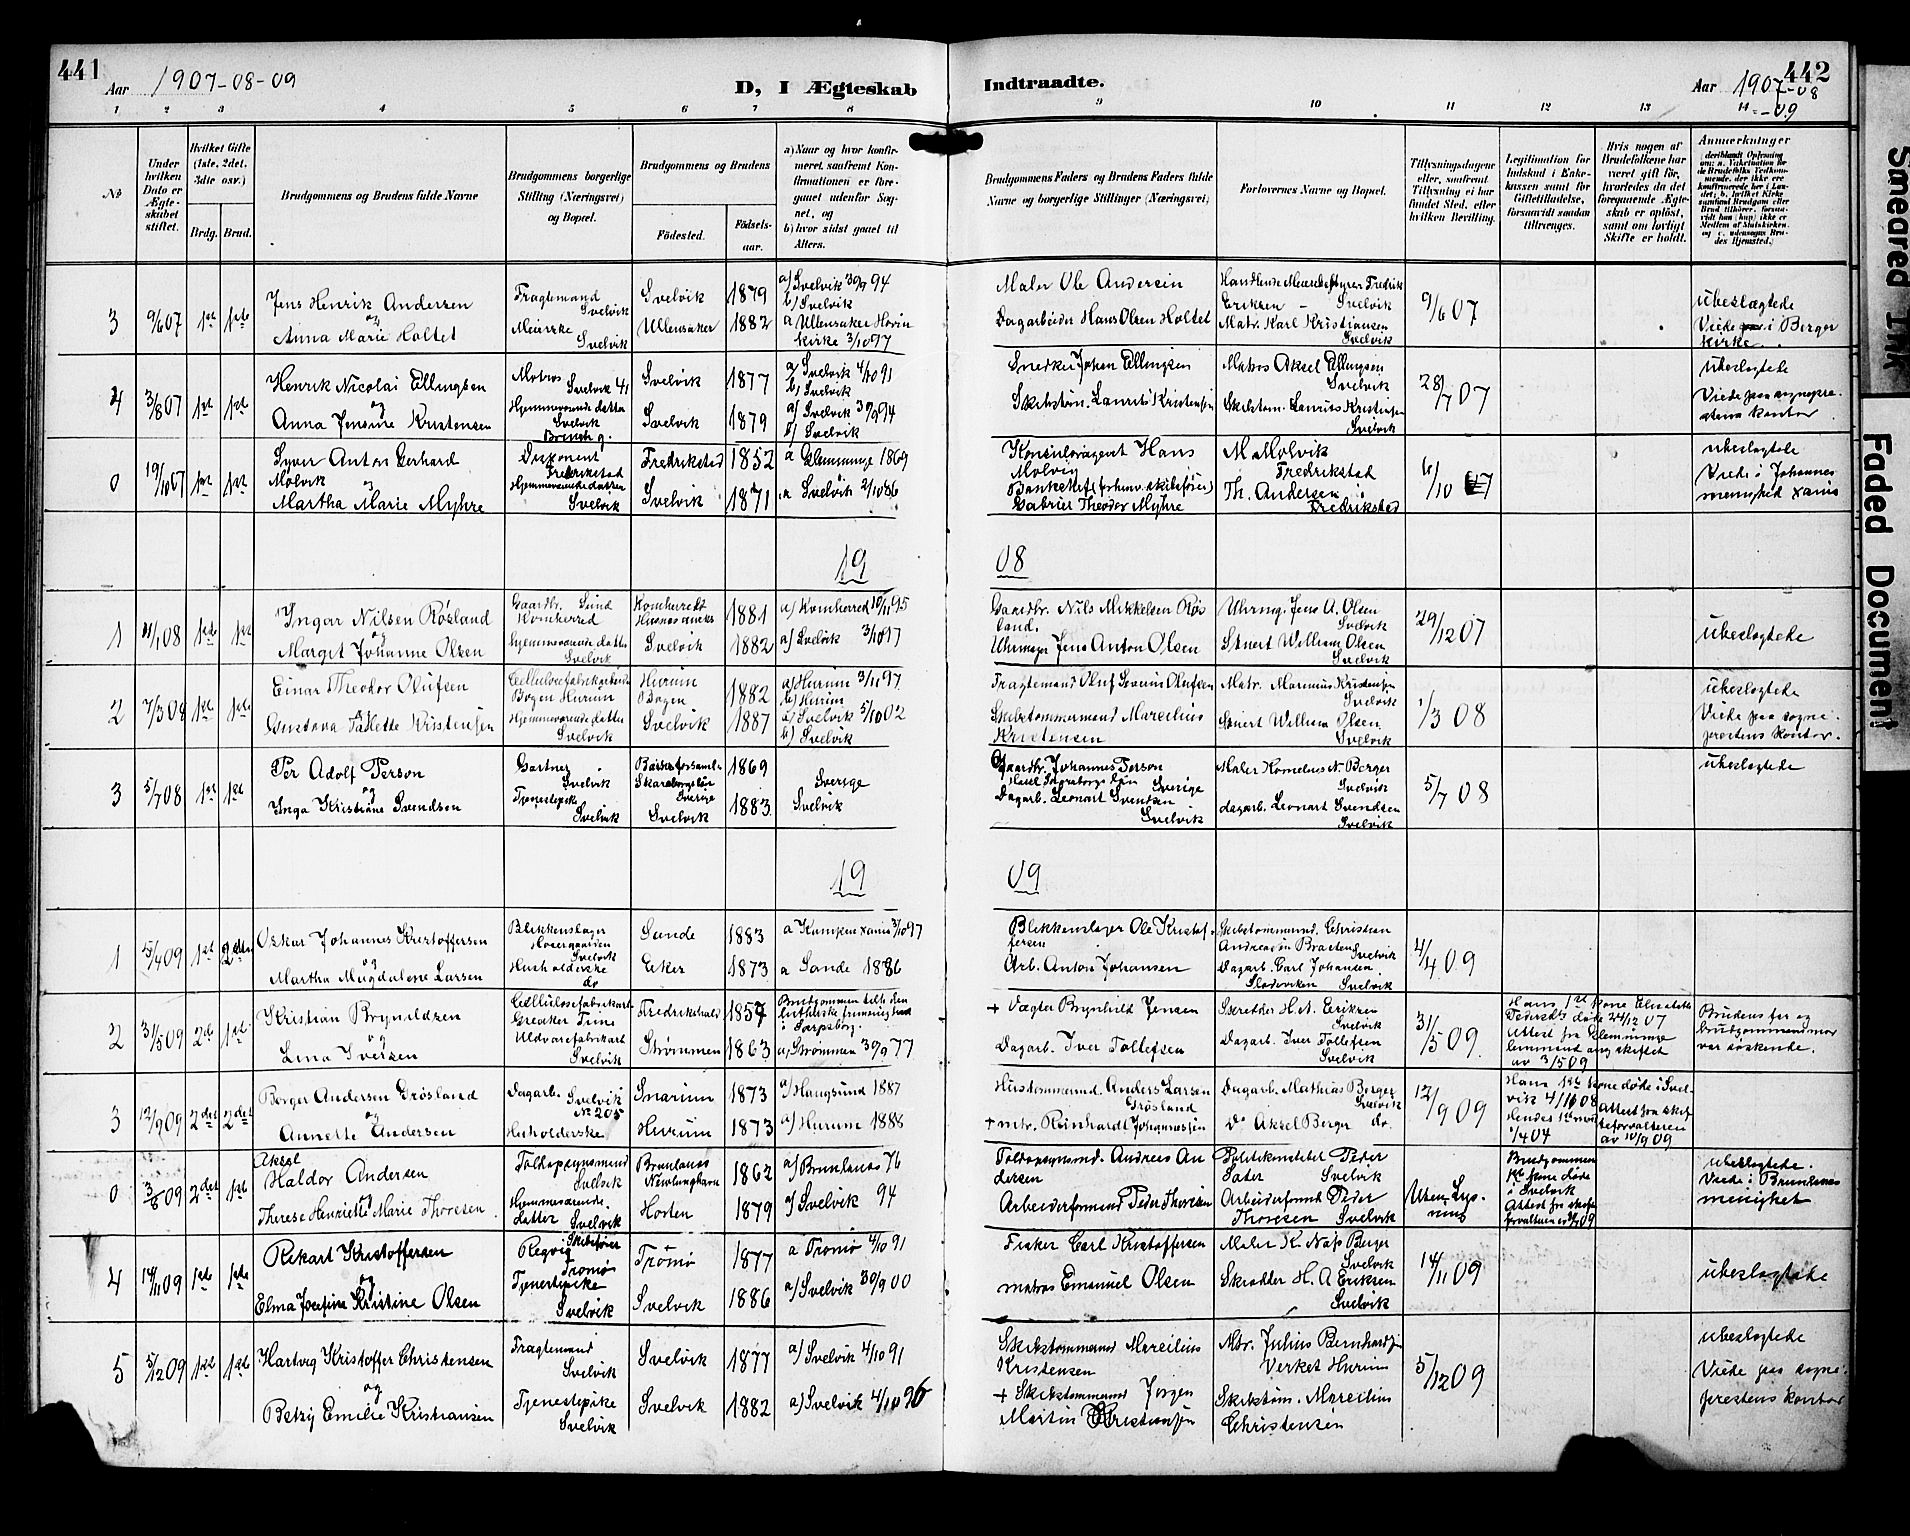 441
Aar 1907-08-09
D, I Ægteskab
Indtraadte.
Aar 1907-08
-09
442
1 2 3 4 5 6 7 8 9 10 11 12 13 14
No
Under hvilken Dato er Ægteskabet stiftet.
Hvilket Gifte (1ste, 2det, 3die osv.)
Brdg. Brud.
Brudgommens og Brudens fulde Navne
Brudgommens borgerlige Stilling (Næringsvei) og Bopæl.
Brudgommens og Brudens
Fødested.
Fødselsaar.
a) Naar og hvor konfirmeret, saafremt Konfirmationen er foregaaet udenfor Sognet, og
b) hvor sidst gaaet til Alters.
Brudgommens Faders og Brudens Faders fulde Navne og borgerlige Stillinger (Næringsvei)
Forlovernes Navne og Bopæl.
Tillysningsdagene eller, saafremt Tillysning ei har fundet Sted, efter hvilken Bevilling.
Legitimation for Indskud i Enkekassen samt for Giftetilladelse, forsaavidt saadan tiltrænges.
Hvis nogen af Brudefolkene har været gift før, hvorledes da det foregaaende Ægteskab er opløst, samt om lovligt Skifte er holdt.
Anmerkninger
3 9/6 07 1ste 1ste
Jens Henrik Andersen
og
Anna Marie Holtet
Fragtemand
Svelvik
Meierske
Svelvik
Svelvik 1879
Ullensaker 1882
a) Svelvik 30/9 94
b) Svelvik
a Ullensaker Hovin
kirke 3/10 97
Maler Ole Andersen
Dagarbeider Hans Olsen Holtet
Fredrik
Eriksen - Svelvik
Matr. Karl Kristiansen
Svelvik
9/6 07
ubeslægtede
Viede i Berger
kirke.
4 3/8 07 1ste 1ste
Henrik Nicolai Ellingsen
og
Anna Jensine Kristensen
Matros
Svelvik 41
Hjemmeværende datter
Svelvik
Svelvik 1877
Svelvik 1879
a) Svelvik 4/10 91
b) Svelvik
a) Svelvik 30/9 94
b) Svelvik
Snedker Johan Ellingsen
Skibstøm. Laurits Kristensen
Matros Aksel Ellingsen
Svelvik
Skibstøm. Laurits Kristensen
Svelvik
28/7 07
ubeslegtede
Viede paa sognepræstens
kontor
0 19/10 07 1ste 1ste
Syver Anton Gerhard
Molvik
og
Martha Marie Myhre
Disponent
Fredrikstad
Hjemmeværende datter
Svelvik
Fredrikstad 1852
Svelvik 1871
a Glemminge 1869
a Svelvik 2/10 86
Konsulsagent Hans
Molvig
Gabriel Theodor Myhre
M Molvik
Fredrikstad
Th. Andersen
Fredrikstad
6/10 07
ubeslegtede
Viede i Johannes
menighed Xania
19 08
1 1ste 1ste
Ingar Nilsen Røsland
og
Margit Johanne Olsen
Gaardbr. Sund
Kvinherred
Hjemmeværende datter
Svelvik
Kvinherred 1881
Svelvik 1882
a) Kvinherred 10/11 95
a) Svelvik 3/10 97
Gaardbr. Nils Mikkelsen Røsland.
Uhrmager Jens Anton Olsen
Uhrmg. Jens A. Olsen
Svelvik
Stuert William Olsen
Svelvik
29/12 07
ubeslegtede
2 7/3 08 1ste 1ste
Einar Theodor Olufsen
og
Gustava Kristensen
Bogen Hurum
Hjemmeværende datter
Svelvik
Hurum
Bogen 1882
Svelvik 1887
a) Hurum 3/11 97
b) Hurum
a) Svelvik 5/10 02
b) Svelvik
Fragtemand Oluf Severin Olufsen
Skibstømmermand Marcelius
Kristensen
Matr. Marenius Kristensen
Svelvik
Stuert William Olsen
Svelvik
1/3 08
ubeslegtede
Viede paa sogneprestens
kontor.
3 5/7 08 1ste 1ste
Per Adolf Person
og
Inga Kristiane Svendsen
Gartner
Svelvik
Tjenestepike
Svelvik
Skaraborgslæn
Sverige 1869
Svelvik 1883
Sverige
Svelvik
Gaardbr. Johannes Person
Sverige
Dagarb. Leonart Svendsen
Svelvik
Maler Kornelius N. Berger
Svelvik
dagarb. Leonart Svendsen
Svelvik
5/7 08
ubeslegtede
19 09
1 5/4 09 1ste 2den
Oskar Johannes Kristoffersen
og
Martha Magdalene Larsen
Blikkenslager
Svelvik
Husholderske
do
Sande 1883
Eker 1873
a Xania 3/10 97
a Sande 1886
Blikkenslager Ole Kristoffersen
Arb. Anton Johansen
Skibstømmermd. Christian
Andreasen Braaten Svelvik
Dagarb. Carl Johansen
Svelvik
4/4 09
2 31/5 09 2de 1ste
Kristian Brynildsen
og
Lina Iversen
Cellulosefabrikarb.
Greaker Tune
Uldvarefabrikarb.
Svelvik
Fredrikshald 1857
Strømmen 1863
Brudgommen tilh. den
lutherske frimenighed
i Sarpsborg.
a) Strømmen 30/9 77
+ Vægter Brynhild Jensen
Dagarb. Iver Tollefsen
Skredder H. A. Eriksen
Svelvik
Dagarb. Iver Tollefsen
Svelvik
31/5 09.
Hans 1st kone
døde 24/12 07
Attest fra Glemminge
lensmand ang skiftet
av 3/5 09
Brudens far og
brudgommens mor
var søskende.
3 12/9 09 2det 2det
Borger Andersen Grøsland
og
Annette Andersen
Dagarb. Svelvik
No 205
Husholderske
Snarum 1873
Hurum 1873
a) Haugsund 1887
a) Hurum 1888
Anders Larsen
Grøsland
+ mtr. Reinhardt Johannessen
Dagarb. Mathias Berger
Svelvik
Do Aksel Berger do.
12/9 09
Hans 1ste kone døde i Svelvik
4/11 08
Hendes 1ste man
1/4 04
Attest fra skifteforvalteren
av 10/9 09
0 2det 1ste
Aksel
Haldor Andersen
og
Therese Henriette Marie Thoresen.
Toldopsynsmand
Svelvik
Hjemmeværende
datter Svelvik
Brunlanes
Nevlunghavn 1862
Horten 1879
a) Brunlanes 76
a) Svelvik 94
Toldopsynsmd. Andreas Andersen
Arbeiderformand Peder Thoresen
Politikonstabel Peder
Sater Svelvik
Arbeiderformd Peder
Thoresen Svelvik
Uten Lysning
Brudgommens
1st kone døde
i Svelvik
Attest fra skifteforvalteren
ubeslegtede.
Viede i Brunlanes
menighet
4 14/11 09 1ste 1ste
Rikart Kristoffersen
og
Elma Josefine Kristine Olsen
Skibsfører
Tromø
Tjenestepike
Svelvik
Tromø 1877
Svelvik 1886
a Tromø 4/10 91
a) Svelvik 30/9 00
Fisker Carl Kristoffersen
matros Emanuel Olsen
Maler K. Berger
Svelvik
Skrædder H. A Eriksen
Svelvik
14/11 09
ubeslegtede
5 5/12 09 1ste 1ste
Hartvig Kristoffer Christensen
og
Betzy Emilie Kristiansen
Fragtemand
Svelvik
Tjenestepike
Svelvik
Svelvik 1877
Svelvik 1882
a) Svelvik 4/10 91
a) Svelvik 4/10 96
Skibstømmermd Marcilius
Kristensen
+ Skibstømmermd Jørgen
Martin Kristiansen
Mtr. Julius Bernhardsen
Verket Hurum
Skibstøm. Marcilius
Christensen
5/12 09
ubeslegtede
Viede paa sogneprestens
kontor
Smeared Ink
Faded Document